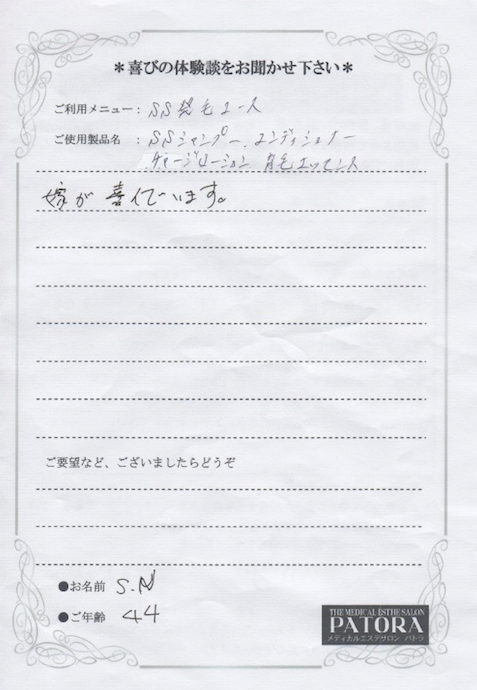 ＊喜びの体験談をお聞かせ下さい＊
ご利用メニュー：SS発毛コース
ご使用製品名：SSシャンプー、コンディショナー
チャージローション、育毛エッセンス
嫁が喜んでいます。
ご要望など、ございましたらどうぞ
●お名前 S.N
●ご年齢 44
THE MEDICAL ESTHE SALON
PATORA
メディカルエステサロン パトラ